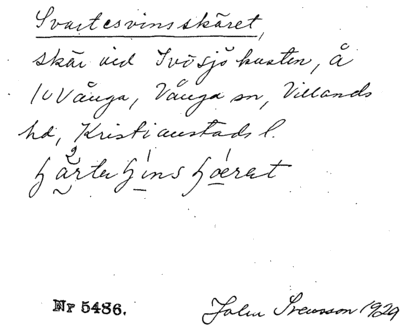 Svartesvinsskäret,
skär vid Ivösjökusten, å
10 Vånga, Vånga sn, Villands
hd, Kristianstads l.
Nr 5486. John Svensson 1929